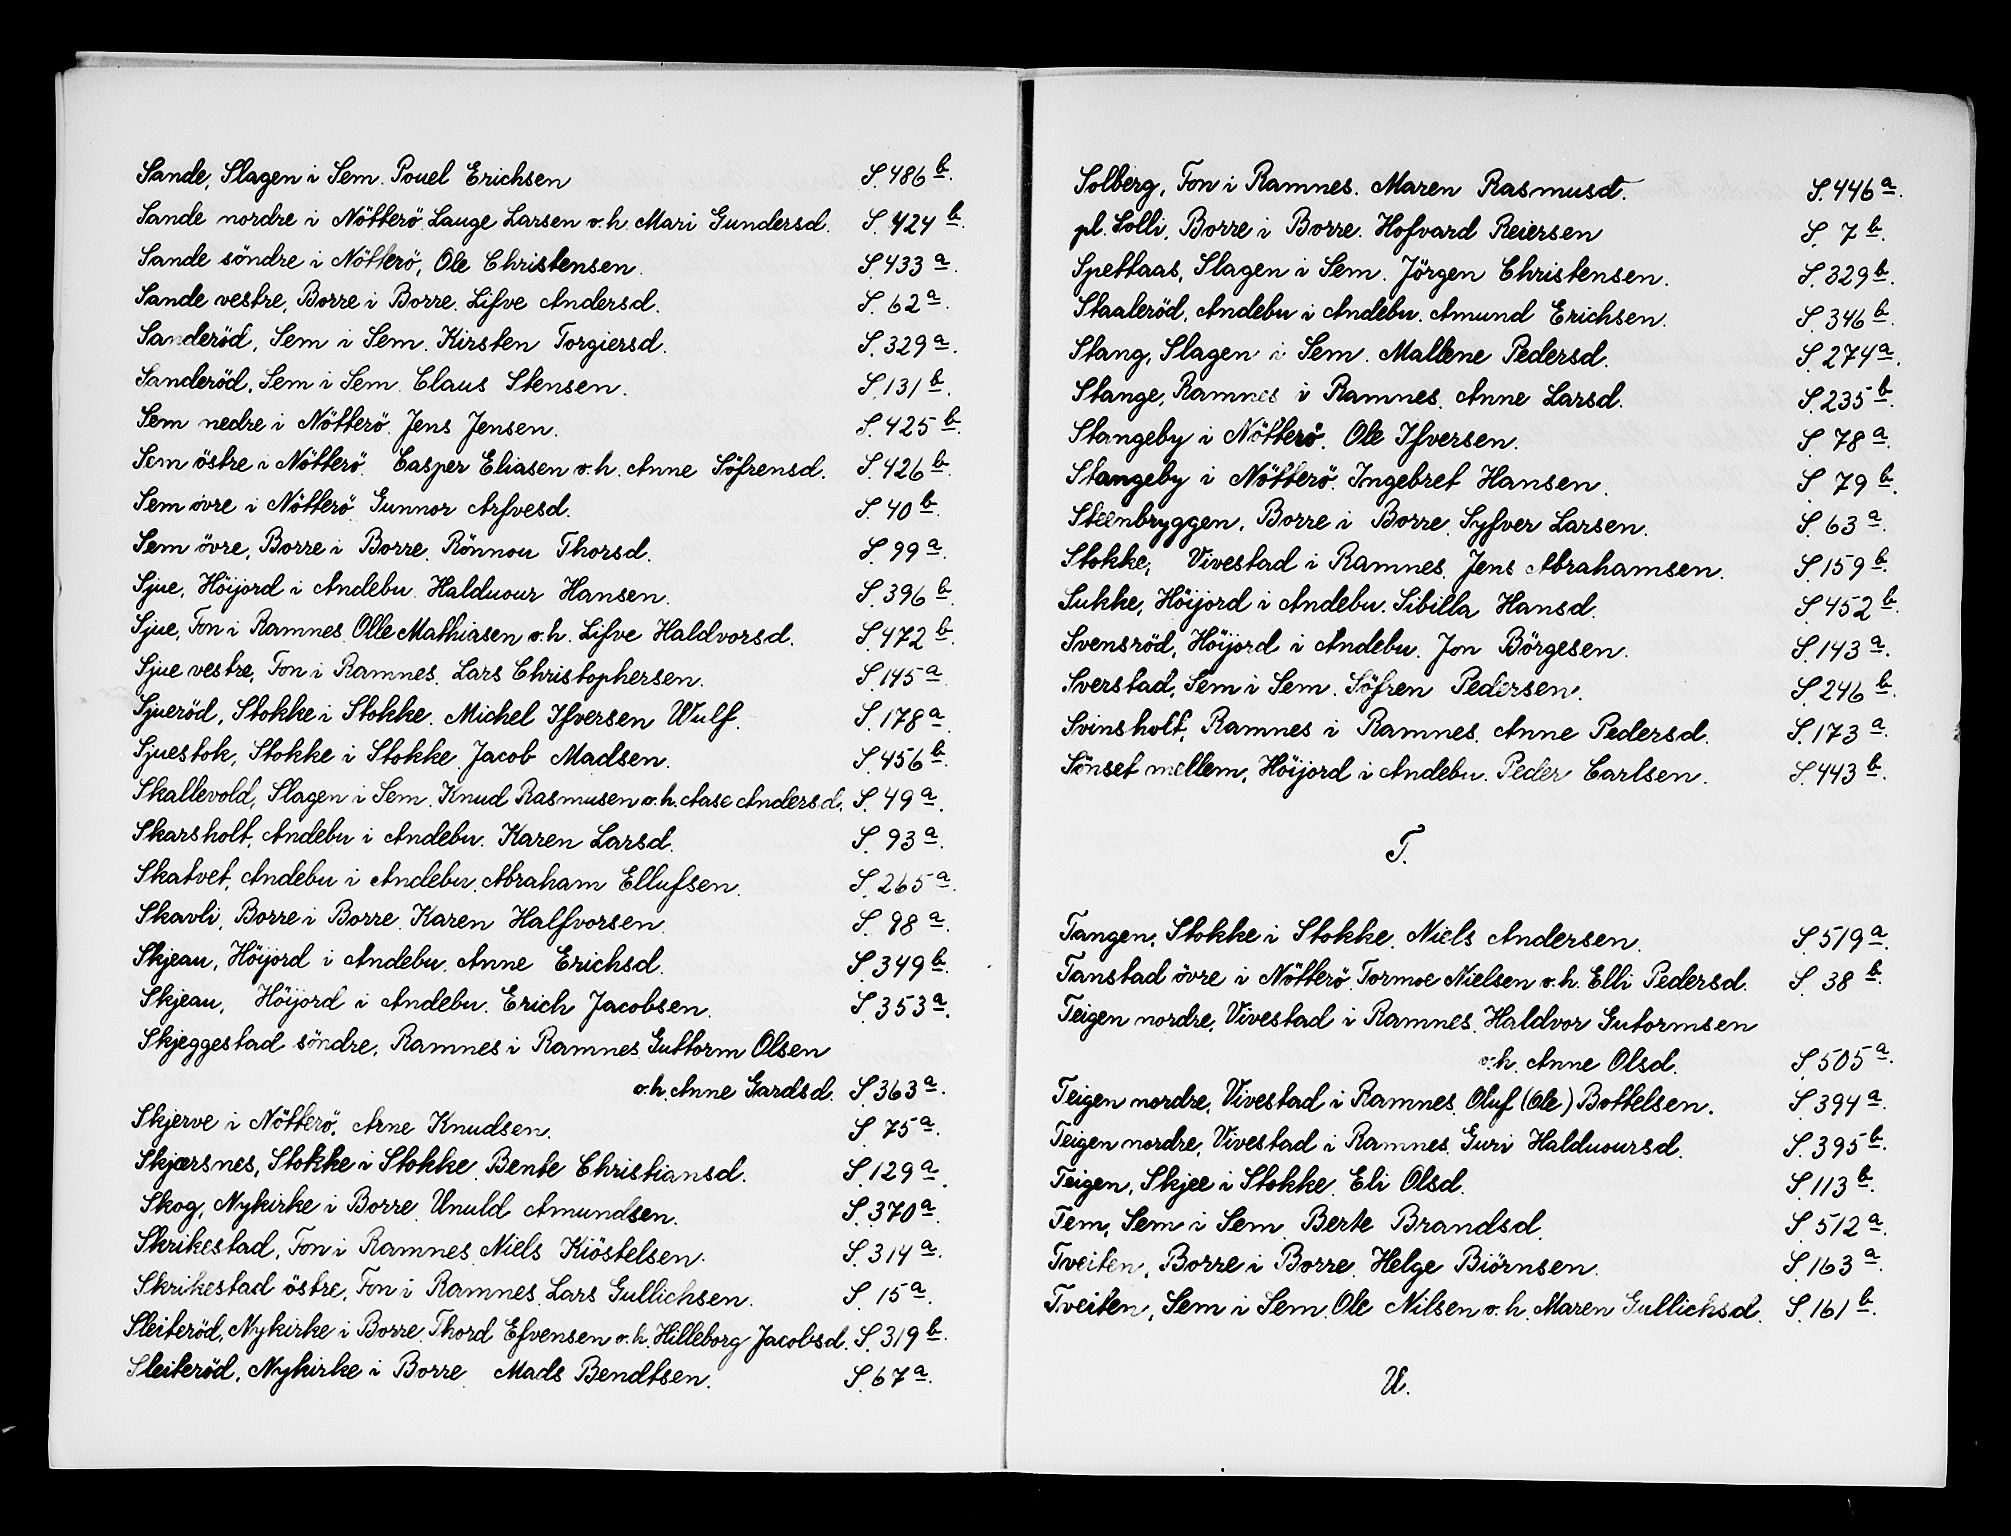 Sande, Slagen i Sem. Pouel Erichsen S. 486 b.
Sande nordre i Nötterö. Lauge Larsen o.h. Mari Gundersd. S. 424 b.
Sande söndre i Nötterö, Ole Christensen. S. 433 a.
Sande vestre, Borre i Borre. Lifve Andersd. S. 62 a.
Sanderöd, Sem i Sem. Kirsten Torgiersd. S. 329 a.
Sanderöd, Sem i Sem. Claus Stensen. S. 131 b.
Sem nedre i Nötterö. Jens Jensen. S. 425 b.
Sem östre i Nötterö. Casper Eliasen o.h. Anne Söfrensd. S. 426 b.
Sem övre i Nötterö. Gunnor Arfvesd. S. 40 b.
Sem övre, Borre i Borre. Rönnou Thorsd. S. 99 a.
Sjue, Höijord i Andebu. Halduour Hansen. S. 396 b.
Sjue, Fon i Ramnes. Olle Mathiasen o.h. Lifve Haldvorsd. S. 472 b.
Sjue vestre, Fon i Ramnes. Lars Christophersen. S. 145 a.
Sjueröd, Stokke i Stokke. Michel Ifversen Wulf. S. 178 a.
Sjuestok, Stokke i Stokke. Jacob Madsen. S. 456 b.
Skallevold, Slagen i Sem. Knud Rasmusen o.h. Aase Andersd. S. 49 a.
Skarsholt, Andebu i Andebu. Karen Larsd. S. 93 a.
Skatvet, Andebu i Andebu. Abraham Ellufsen. S. 265 a.
Skavli, Borre i Borre. Karen Halfvorsen. S. 98 a.
Skjeau, Höijord i Andebu. Anne Erichsd. S. 349 b.
Skjeau, Höijord i Andebu. Erich Jacobsen. S. 353 a.
Skjeggestad söndre, Ramnes i Ramnes. Guttorm Olsen
o.h. Anne Gardsd. S. 363 a.
Skjerve i Nötterö. Arne Knudsen. S. 75 a.
Skjærsnes, Stokke i Stokke. Bente Christiansd. S. 129 a.
Skog, Nykirke i Borre. Unuld Amundsen. S. 370 a.
Skrikestad, Fon i Ramnes. Niels Kiöstelsen. S. 314 a.
Skrikestad östre, Fon i Ramnes. Lars Gullichsen. S. 15 a.
Sleiteröd, Nykirke i Borre. Thord Efvensen o.h. Hilleborg Jacobsd. S. 319 b.
Sleiteröd, Nykirke i Borre. Mads Bendtsen. S. 67 a.
Solberg, Fon i Ramnes. Maren Rasmusd. S. 446 a.
pl. Solli, Borre i Borre. Hofvard Reiersen S. 7 b.
Spettaas, Slagen i Sem. Jörgen Christensen. S. 329 b.
Staaleröd, Andebu i Andebu. Amund Erichsen. S. 346 b.
Stang, Slagen i Sem. Mallene Pedersd. S. 274 a.
Stange, Ramnes i Ramnes. Anne Larsd. S. 235 b.
Stangeby i Nötterö. Ole Ifversen. S. 78 a.
Stangeby i Nötterö. Ingebret Hansen. S. 79 b.
Steenbryggen, Borre i Borre. Syfver Larsen. S. 63 a.
Stokke, Vivestad i Ramnes. Jens Abrahamsen. S. 159 b.
Sukke, Höijord i Andebu. Sibilla Hansd. S. 452 b.
Svensröd, Höijord i Andebu. Jon Börgesen. S. 143 a.
Sverstad, Sem i Sem. Söfren Pedersen. S. 246 b.
Svinsholt, Ramnes i Ramnes. Anne Pedersd. S. 173 a.
Sönset mellem, Höijord i Andebu. Peder Carlsen. S. 443 b.
T.
Tangen, Stokke i Stokke. Niels Andersen. S. 519 a.
Tanstad övre i Nötterö. Tormoe Nielsen o.h. Elli Pedersd. S. 38 b.
Teigen nordre, Vivestad i Ramnes. Haldvor Gutormsen
o.h. Anne Olsd. S. 505 a.
Teigen nordre, Vivestad i Ramnes. Oluf (Ole) Bottelsen. S. 394 a.
Teigen nordre, Vivestad i Ramnes. Guri Halduoursd. S. 395 b.
Teigen, Skjee i Stokke. Eli Olsd. S. 113 b.
Tem, Sem i Sem. Berte Brandsd. S. 512 a.
Tveiten, Borre i Borre. Helge Biörnsen. S. 163 a.
Tveiten, Sem i Sem. Ole Nilsen o.h. Maren Gullichsd. S. 161 b.
U.